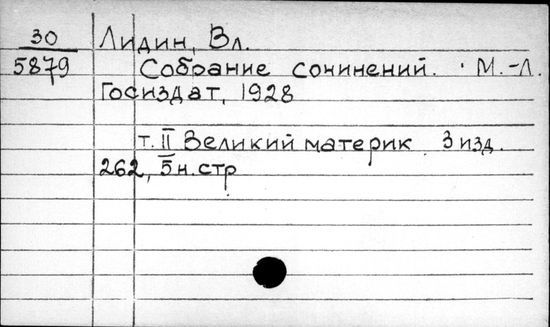 30 Лидин, Вл.
5879 Собрание сочинений. М.-Л.
Госиздат, 1928
т. II Великий материк 3 изд.
262, 5 н. стр